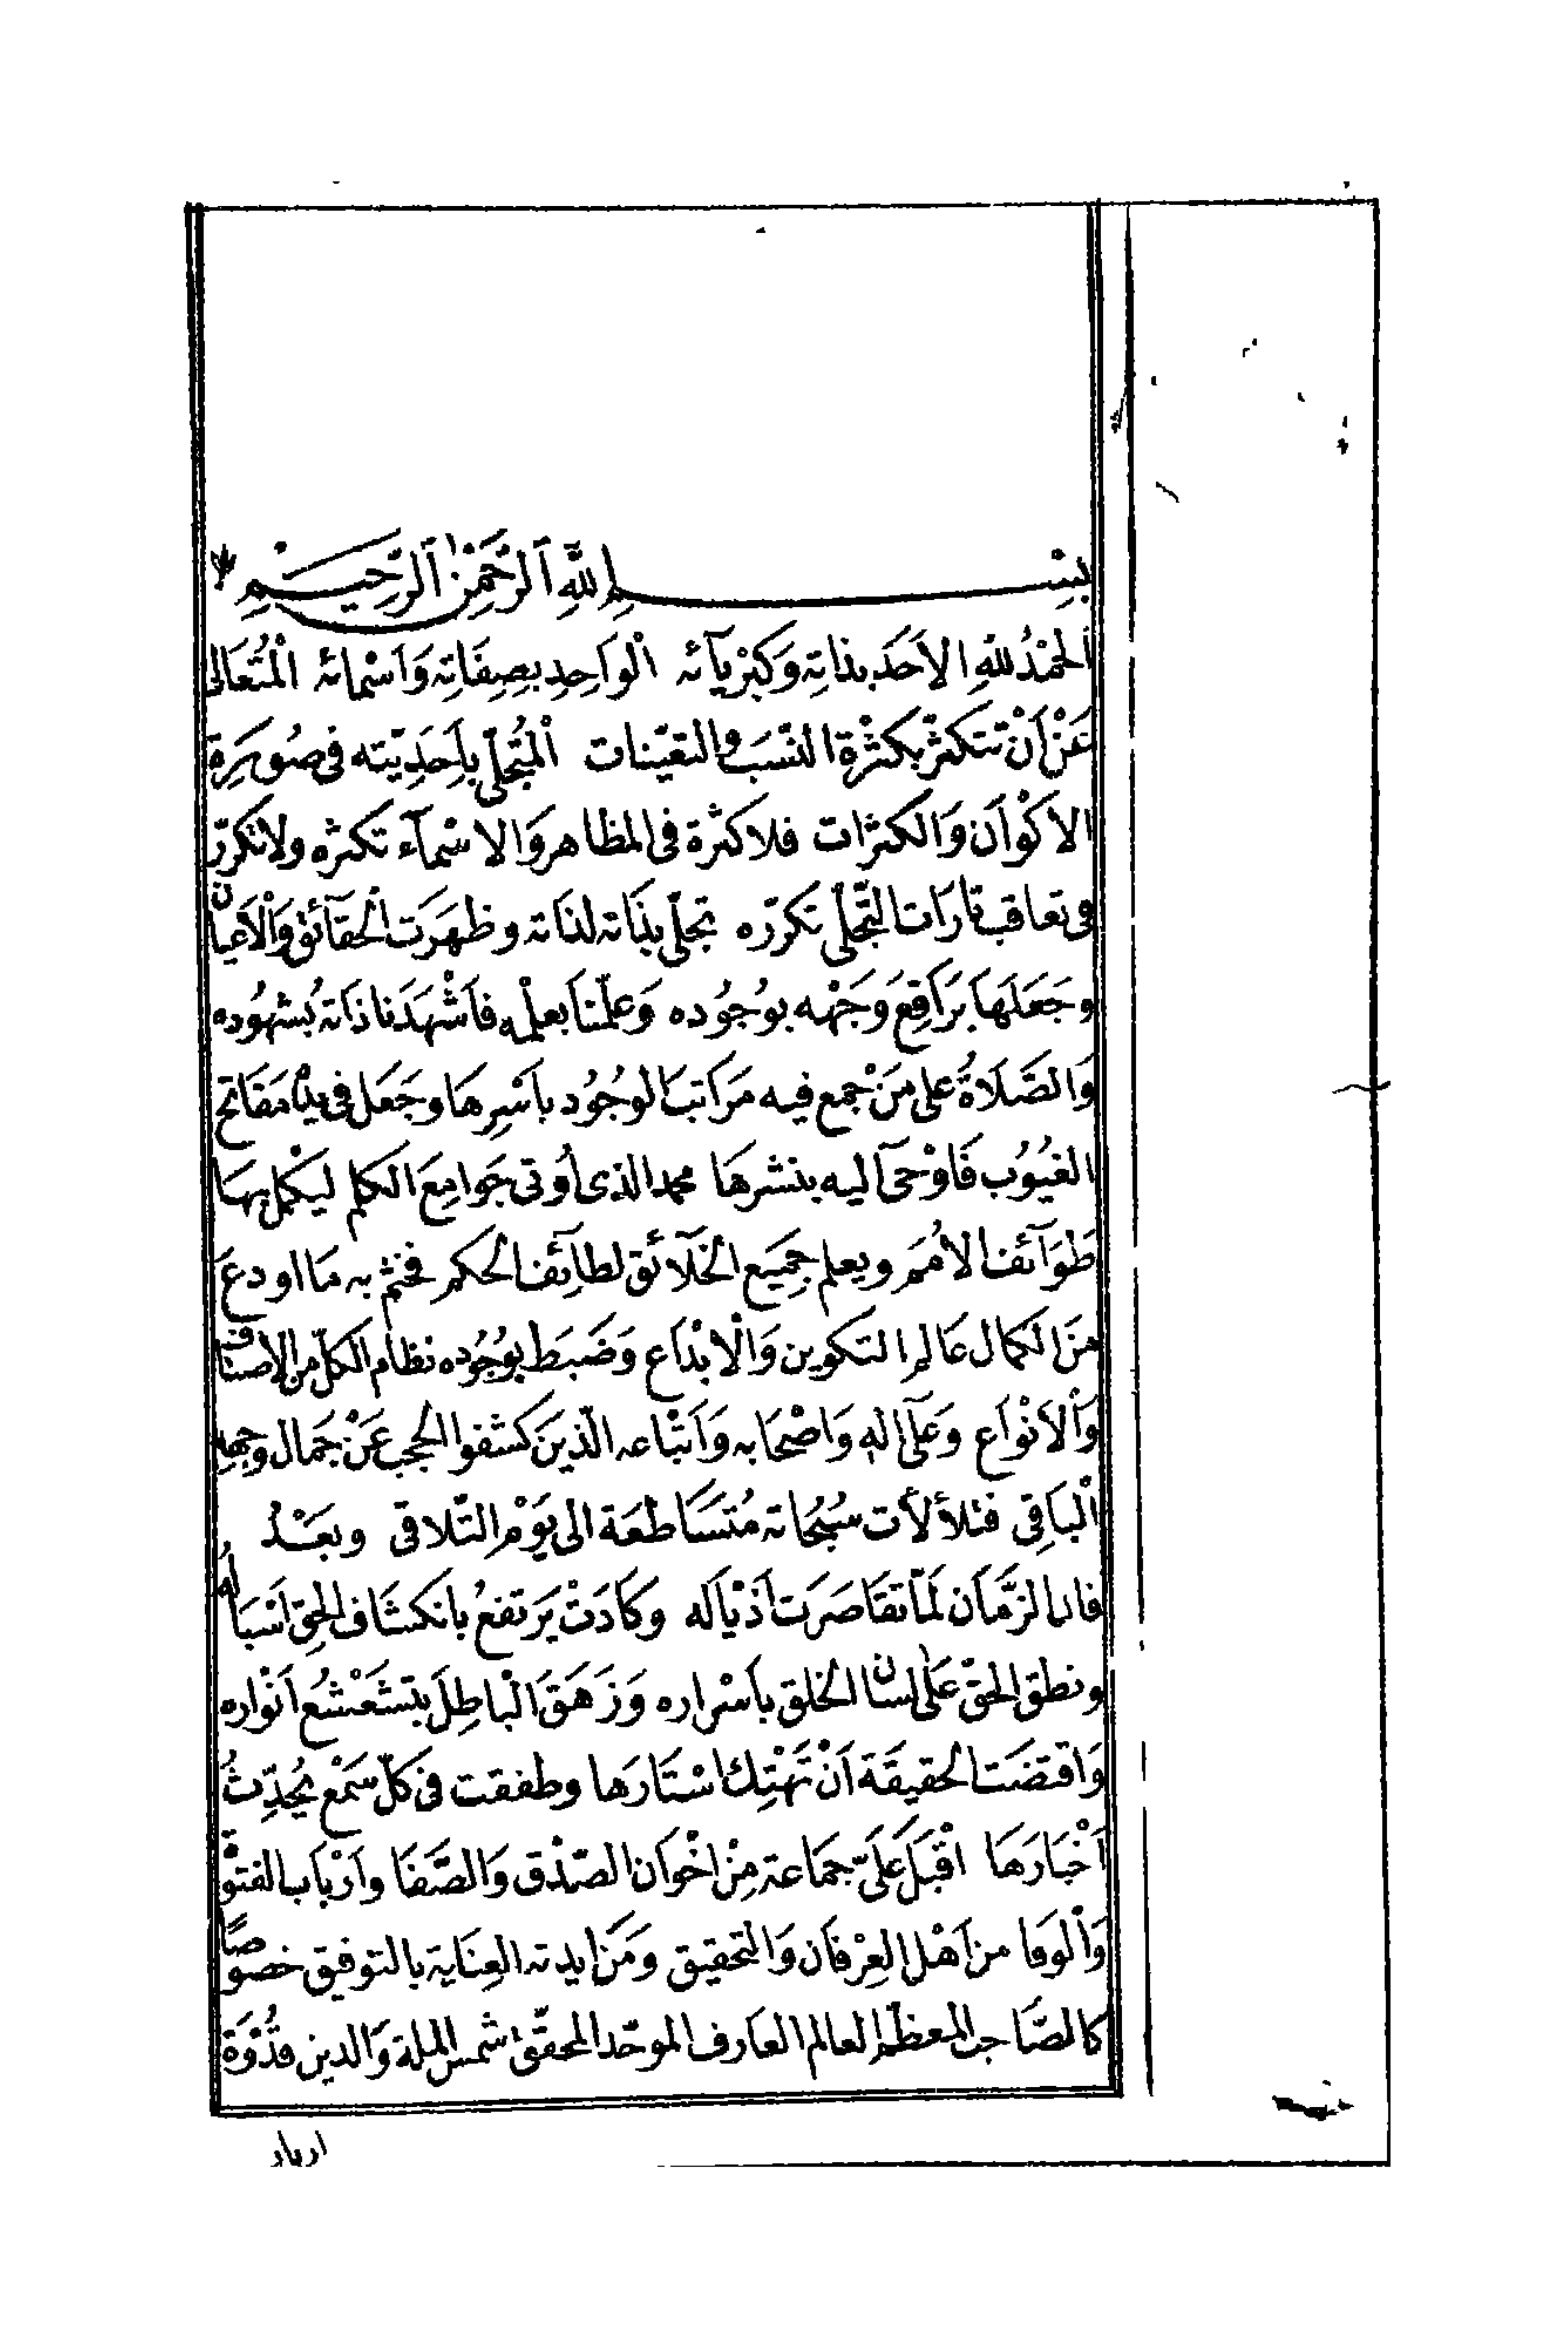 بِسْمِ اللَّهِ الرَّحْمَنِ الرَّحِيمِ
اَلْحَمْدُ للهِ الاَحَدِ بذاتِهِ وَكِبْرِيَآئه الْوَاحِدِ بِصِفَاتِهِ وَاَسْمائه الْمُتَعَالِى
عَنْ اَنْ تتكثّر بكثْرة النّسَب والتعيّنات الْمُتجلّي بِاَحَدِيّته فى صُورَة
الاَكْوَان وَالكثرات فلا كثرة فى المظاهر وَالاسْمآء تكثره ولا تكرّر
فى تعاقب تارَات التّجلّى تكرّره تجلّى بذَاته لذَاته وظهَرَت الْحقآئق وَالْاَعْيان
وجَعَلَهَا بَرَاقِعَ وَجْهه بوُجُوده وَعلّمنَا بعلْمه فاَشْهَدَنا ذَاته بُشهُوده
وَالصَّلَاةُ على مَنْ جمع فيه مَرَاتبَ الوجُوُد باَسْرِهَا وجَعَل فى يدهْ مَفَاتح
الغيُوُب فَاوْحَى آليه بنشرهَا محمد الذى اُوتى جَوامِعَ الكلم ليكمل بهَا
طَوَآئف الاُمَم ويعلم جميَع الخلَآئق لطآئف الحكم فختم به مَا اودعَ
مِنَ الكمال عَالم التكوين وَالْابْدَاع وَضَبَط بوُجُوده نظام الكلّ من الاصناف
وَالْاَنْواع وَعَلَى اله وَاصْحَابه وَاَتْباعه الّذينَ كشفوا الحجب عَنْ جَمال وجهه
الْبَاقِى فتلألأت سُبُحَاته مُتَسَاطعَة الى يَوْم التّلاقى وبعَـــدُ
فان الزَّمَان لَمّا تقَاصَرَت اَذْيَاله وكَادَتْ يَرتفعُ بانكشَاف الحقّ اَسْبَالُه
ونطق الحقّ عَلَى لسَان الخلق باَسْراره وَزَهَقَ الْباطِلَ بتشَعْشعُ اَنْواره
وَاقتضَت الحقيقَة اَنْ تَهْتِك اسْتَارَها وطفقت فى كلّ سَمْع يُحَدِّثُ
اَخْبَارَهَا اقْبَلَ عَلَىّ جمَاعة مِنْ اخْوَان الصّدْق وَالصَّفَا واَرْبَاب الفتوّة
وَالْوَفا من اَهْل العِرْفَان وَالتحقيق ومَنْ ايدته العِنَاية بالتوفيق خصوصًا
كالصَّاحب المعظم العالم العَارف الموحّد المحقّق شمس الملة وَالدين قدْوَة
ارباب